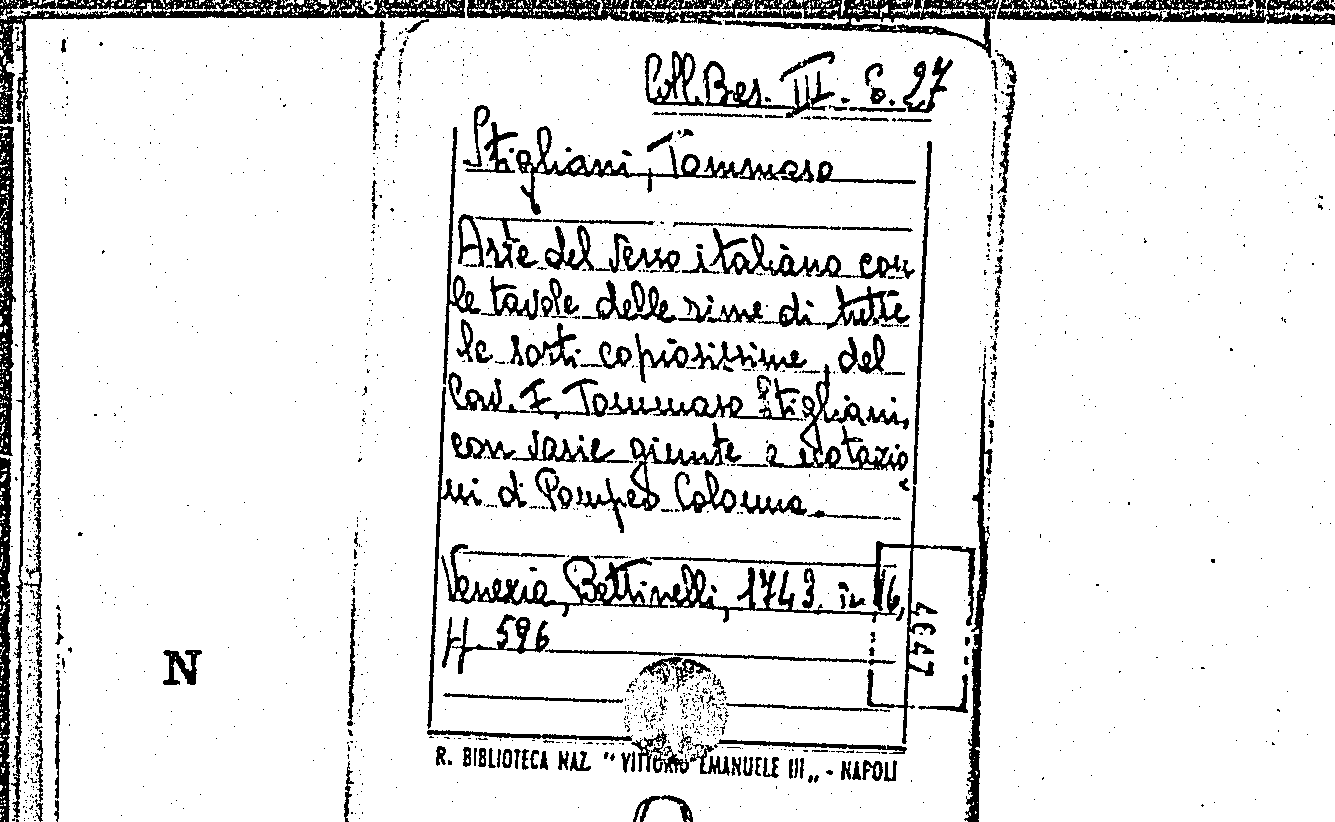 Coll. Bes. III. 6. 27
Stigliani, Tommaso
Arte del verso italiano con
le tavole delle rime di tutte
le sorti copiosissime, del
Cav. F. Tommaso Stigliani,
con varie giunte e notazio
ni di Pompeo Colonna.
Venezia, Bettinelli, 1743. in 16,
pp. 596
N
R. BIBLIOTECA NAZ. "VITTORIO EMANUELE III„ - NAPOLI